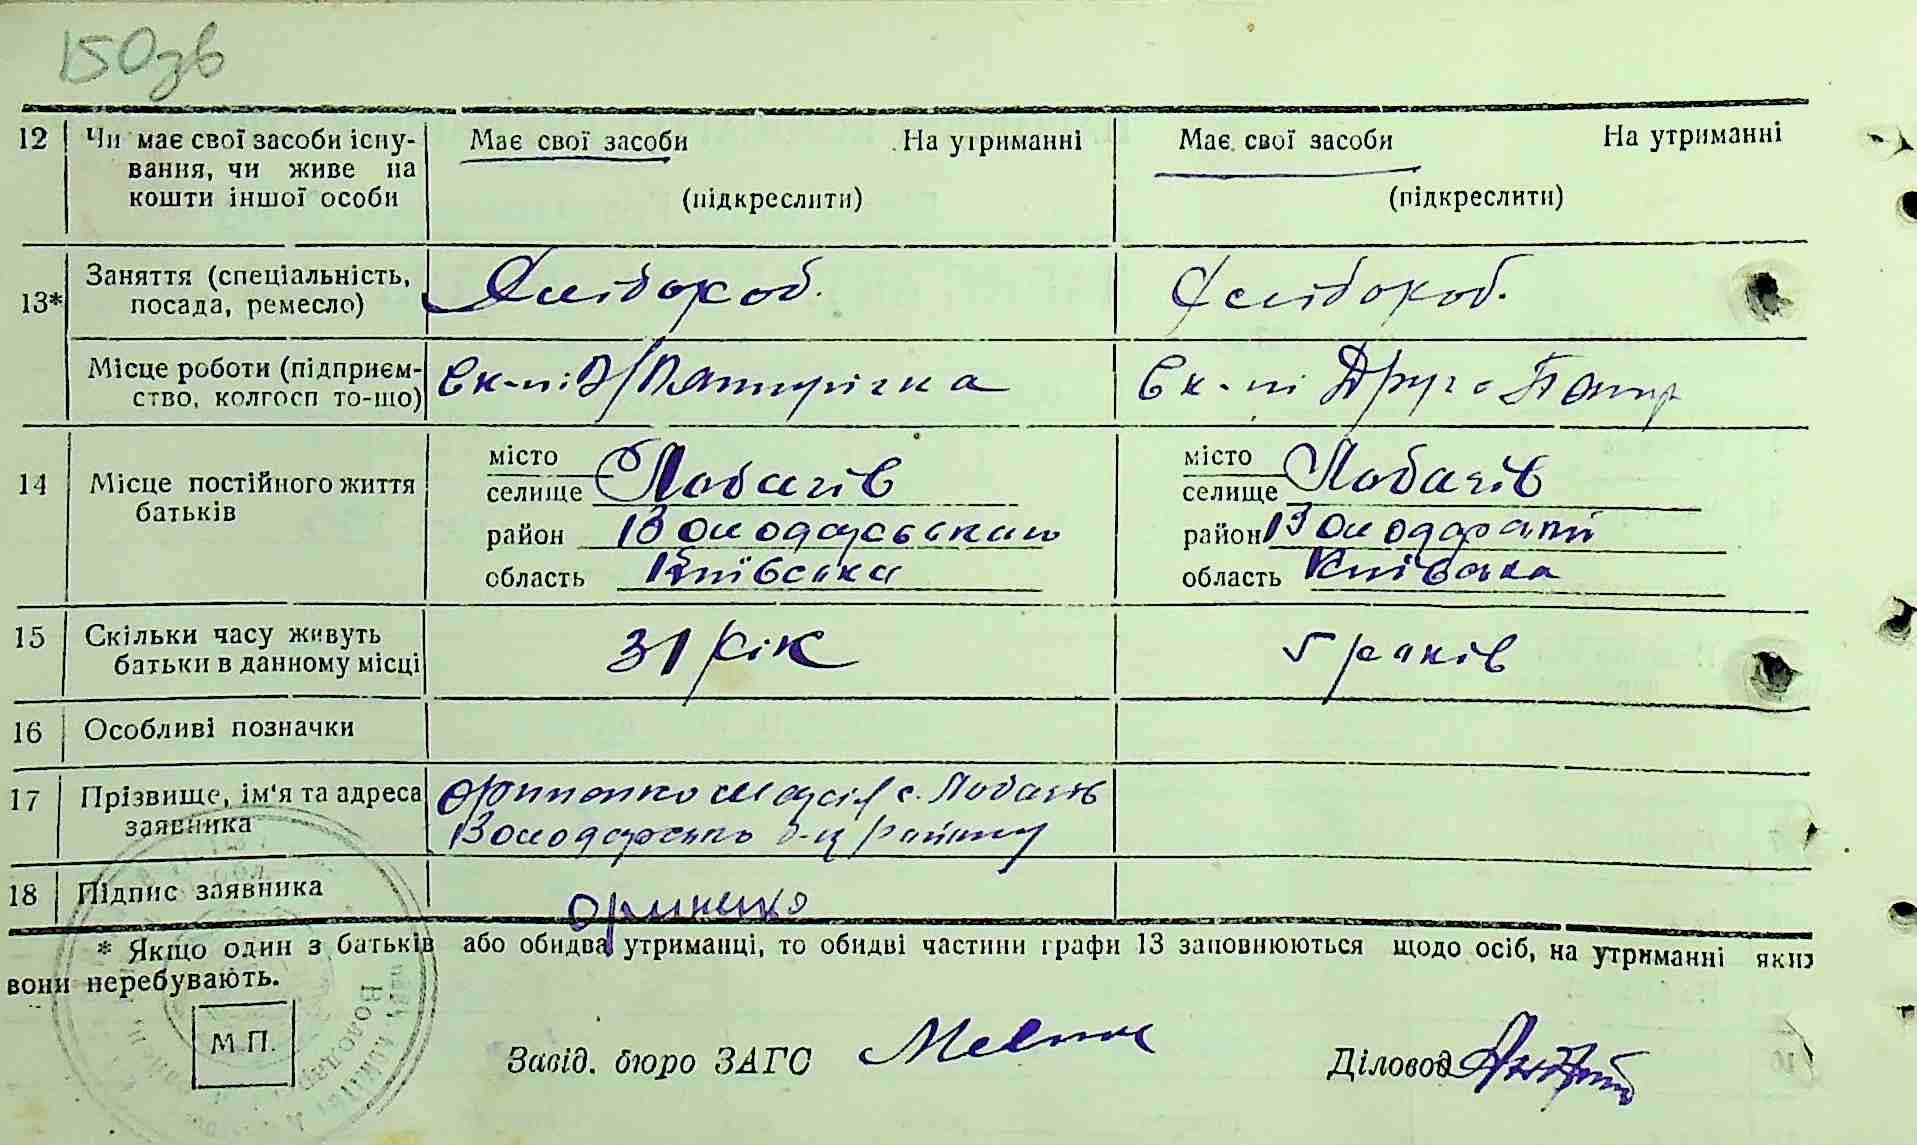 150зв
12 Чи має свої засоби існу- Має свої засоби На утриманні Має свої засоби На утриманні
вання, чи живе на
кошти іншої особи (підкреслити) (підкреслити)
13* Заняття (спеціальність, Хлібороб. Хлібороб.
посада, ремесло)
Місце роботи (підприєм-
ство, колгосп то-що)
14 Місце постійного життя місто Лобачів місто Лобачів
батьків селище селище
район Володарський район Володарський
область Київська область Київська
15 Скільки часу живуть 31 рік 5 років
батьки в данному місці
16 Особливі позначки
17 Прізвище, ім'я та адреса с. Лобачів
заявника Володарського району
18 Підпис заявника
* Якщо один з батьків або обидва утриманці, то обидві частини графи 13 заповнюються щодо осіб, на утриманні яких
вони перебувають.
М П.
Завід. бюро ЗАГС Діловод